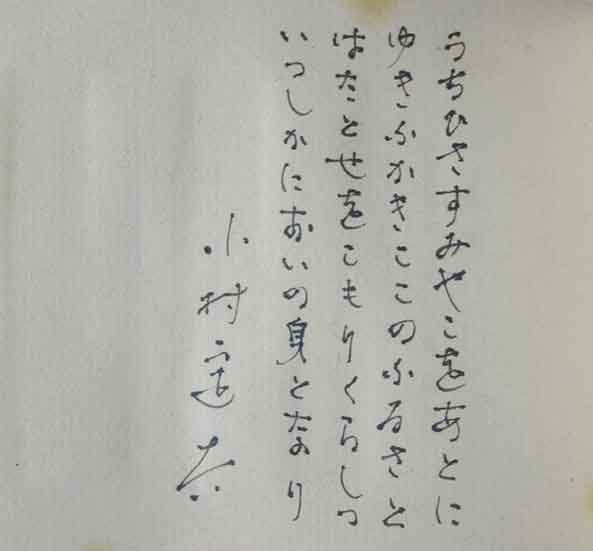 うちひさすみやこをあとに
ゆきふかきここのふるさと
はたとせをこもりくらしつ
いつしかにおいの身となり
小村